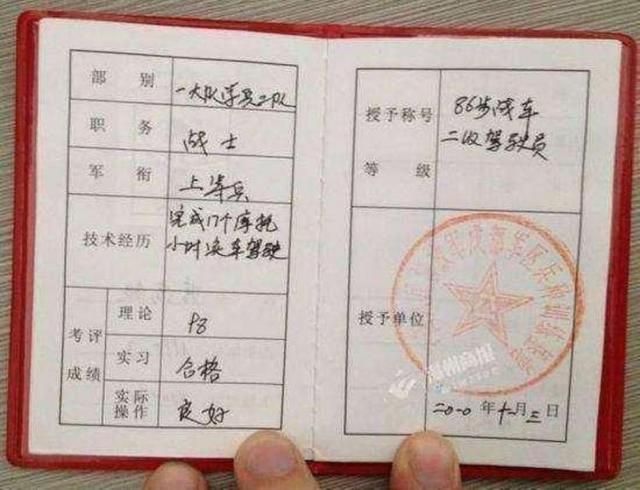 部别
一大队学员二队
职务
战士
军衔
上等兵
技术经历
完成17个摩托
小时乘车驾驶
考评
成绩
理论
98
实习
合格
实际
操作
良好
授予称号
等级
86步战车
二级驾驶员
授予单位
成都军区
温州商报
二〇一〇年十一月三日